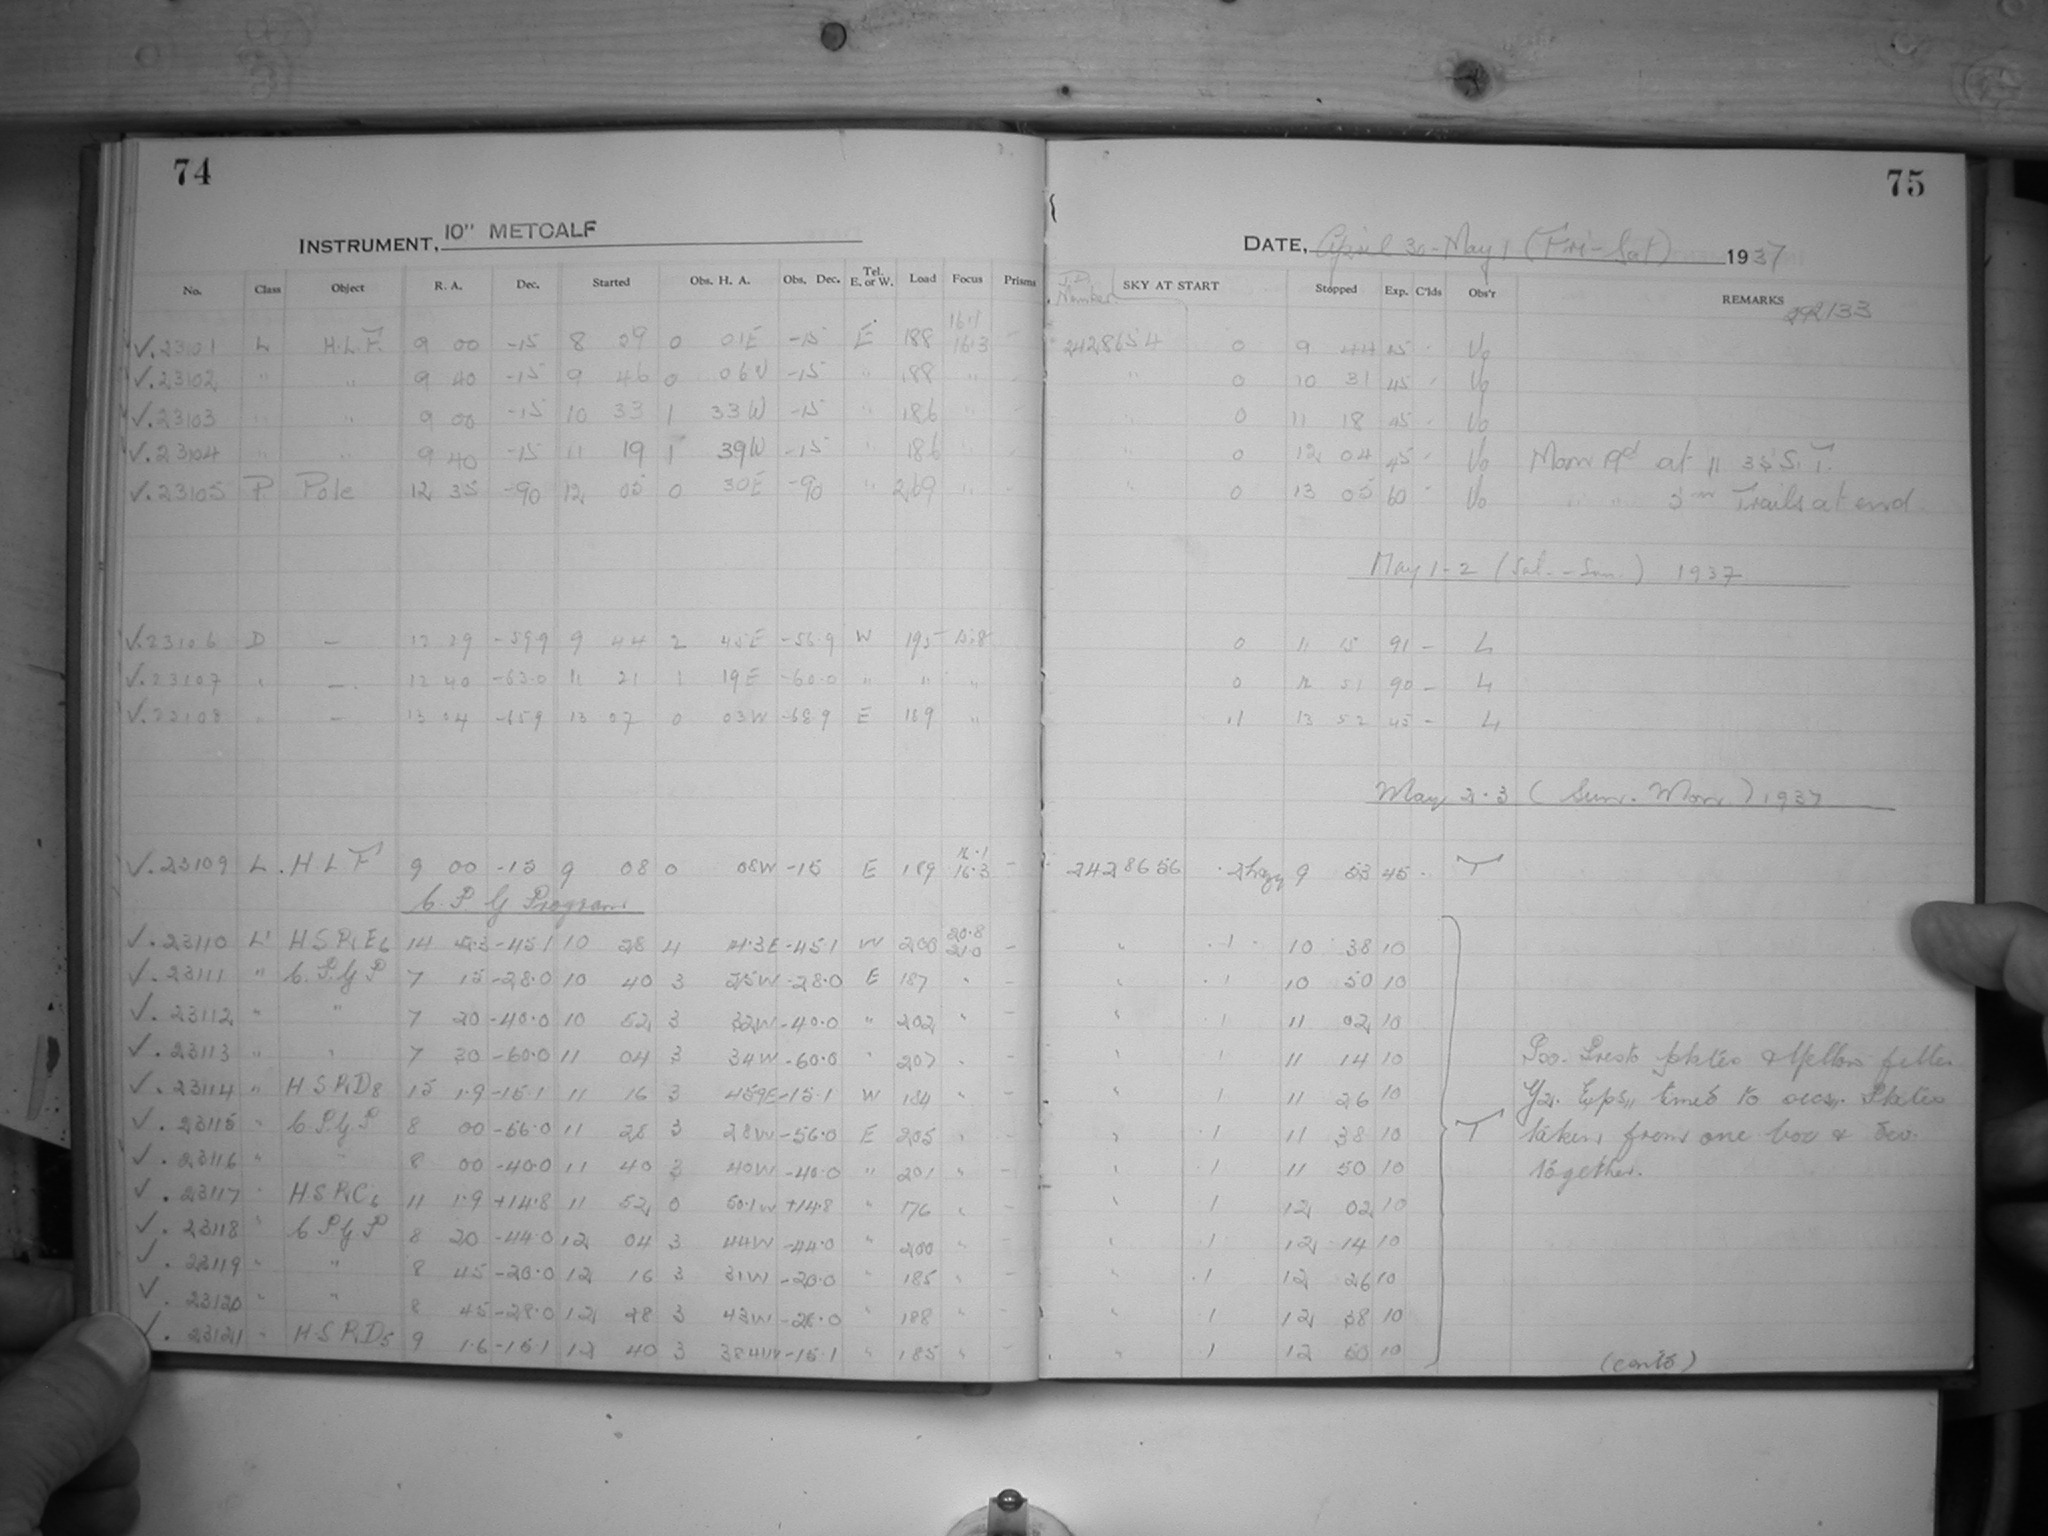 74
INSTRUMENT, 10" METCALF
No. Class Object R. A. Dec. Started Obs. H. A. Obs. Dec. Tel. E. or W. Load Focus Prisms
√.23101 L H.L.F. 9 00 -15 8 59 0 01E -15 E 188 16.3 -
√.23102 " " 9 40 -15 9 46 0 06W -15 " 188 "
√.23103 " " 9 00 -15 10 33 1 33W -15 " 186 "
√.23104 " " 9 40 -15 11 19 1 39W -15 " 186 "
√.23105 P Pole 12 35 -90 12 05 0 30E -90 " 269 " -
√.23106 D - 12 29 -59.9 9 44 2 45E -56.9 W 195 15.8
√.23107 " - 12 40 -63.0 11 21 1 19E -60.0 " " "
√.23108 " - 13 04 -65.9 13 07 0 03W -68.9 E 189 "
√.23109 L. H.L.F 9 00 -15 9 08 0 08W -15 E 189 16.3 -
C. P. G Program
√.23110 L' H.S.P.E6 14 -45.1 10 28 4 E -45.1 W 200 20.8 21.0 -
√.23111 " C.P.G P 7 15 -28.0 10 40 3 25W -28.0 E 187 " -
√.23112 " " 7 20 -40.0 10 52 3 32W -40.0 " 202 " -
√.23113 " " 7 30 -60.0 11 04 3 34W -60.0 " 207 " -
√.23114 " H.S.P.D8 15 1.9 -15.1 11 16 3 45.9E -15.1 W 184 " -
√.23115 " C P G P 8 00 -56.0 11 28 3 28W -56.0 E 205 " -
√.23116 " " 8 00 -40.0 11 40 3 40W -40.0 " 201 " -
√.23117 " H.S.P.C6 11 1.9 +14.8 11 52 0 50.1W +14.8 " 176 " -
√.23118 " C P G P 8 20 -44.0 12 04 3 44W -44.0 " 200 " -
√.23119 " " 8 45 -20.0 12 16 3 31W -20.0 " 185 " -
√.23120 " " 8 45 -28.0 12 28 3 43W -28.0 " 188 " -
√.23121 " H.S.P.D5 9 1.6 -15.1 12 40 3 38.4W -15.1 " 185 " -
75
DATE, April 30-May 1 (Fri-Sat) 1937
J.D. Number SKY AT START Stopped Exp. C'lds Obs'r REMARKS
2428654 0 9 44 45 Vo
" 0 10 31 45 Vo
" 0 11 18 45 Vo
" 0 12 04 45 Vo Moon at 11 35 S.T.
0 13 05 60 Vo " " 3m Trails at end
May 1-2 (Sat.-Sun.) 1937
0 11 15 91 - L
0 12 51 90 - L
.1 13 52 45 - L
May 2.3 (Sun. Mon) 1937
2428656 .2 hazy 9 53 45 . T
" .1 10 38 10
" .1 10 50 10
" .1 11 02 10
" 1 11 14 10
" 1 11 26 10
" .1 11 38 10 T
" .1 11 50 10
" 1 12 02 10
" .1 12 14 10
" .1 12 26 10
" 1 12 38 10
" .1 12 50 10
plates & Yellow filter
timed 10 secs. Plates
taken from one box &
together.
(contd)